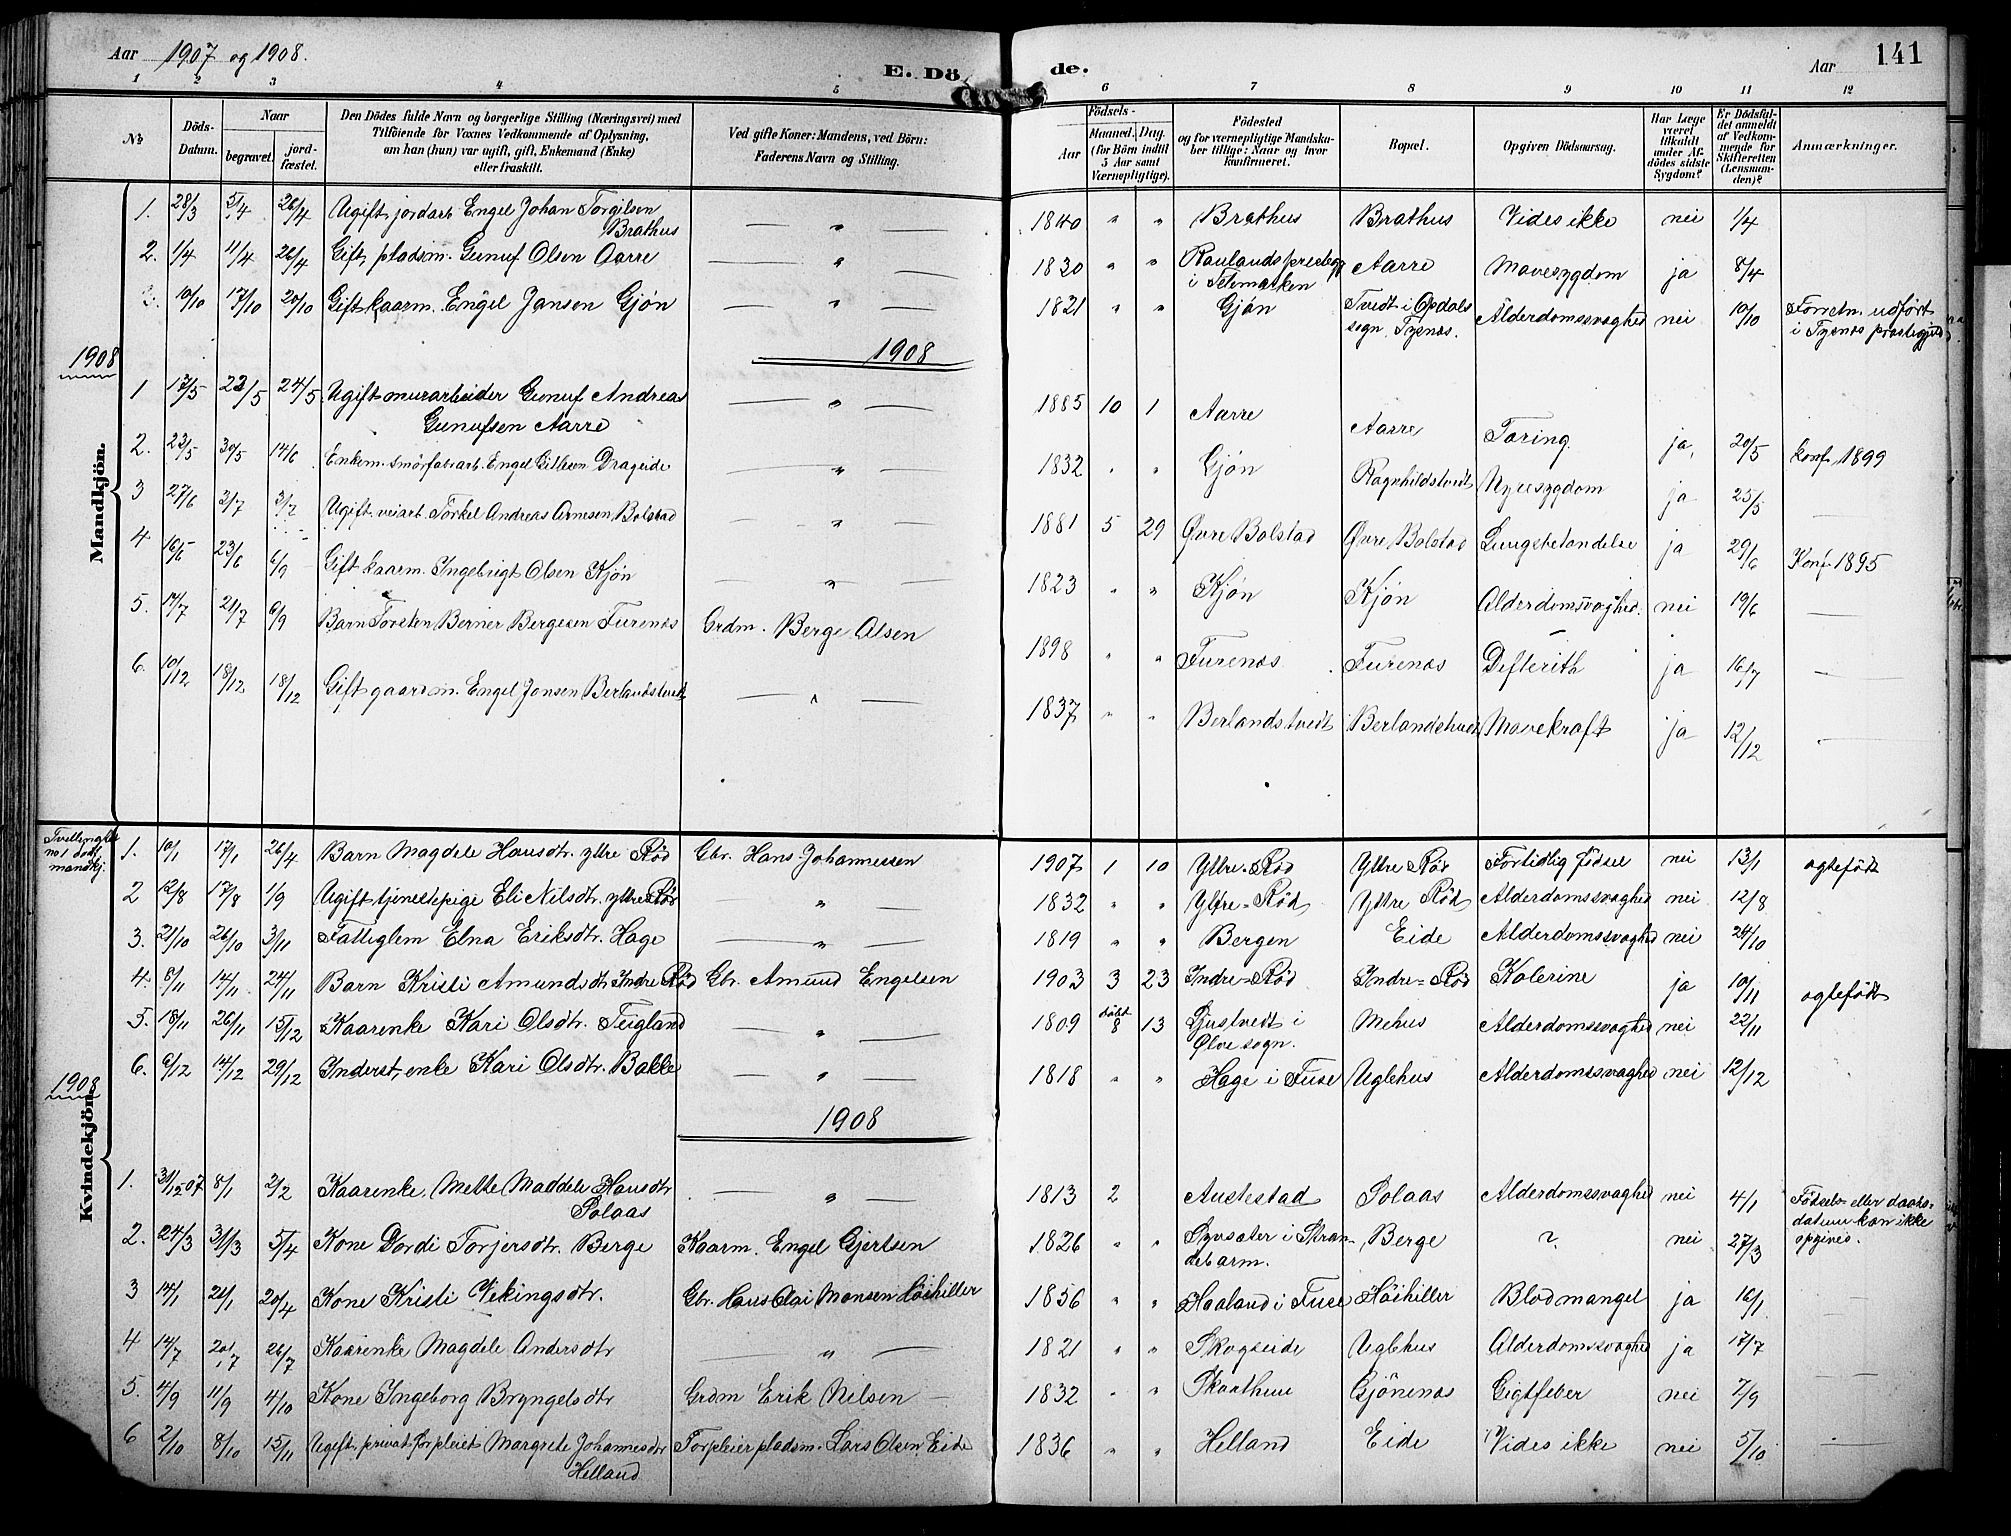 Aar 1907 og 1908.
E. Dö de.
Aar 141
1 2 3 4 5 6 7 8 9 10 11 12
No
Döds-Datum.
Naar
begravet.
jord-fæstet.
Den Dödes fulde Navn og borgerlige Stilling (Næringsvei) med
Tilföiende for Voxnes Vedkommende af Oplysning,
om han (hun) var ugift, gift, Enkemand (Enke)
eller fraskilt.
Ved gifte Koner: Mandens, ved Börn:
Faderens Navn og Stilling.
Födsels-
Aar
Maaned. Dag.
(for Börn indtil
5 Aar samt
Værnepligtige).
Födested
og for værnepligtige Mandska-
ber tillige: Naar og hvor
konfirmeret.
Bopæl.
Opgiven Dödsaarsag.
Har Læge
været
tilkaldt
under Af-
dödes sidste
Sygdom?
Er Dödsfal-
det anmeldt
af Vedkom-
mende for
Skifteretten
(Lensman-
den)?
Anmærkninger.
Mandkjön.
1. 28/3 5/4 26/4 Ugift jordarb. Engel Johan Torgilsen Brathus — " — 1840 " " Brathus Brathus Vides ikke nei 1/4
2. 1/4 11/4 26/4 Gift pladsm. Gunuf Olsen Aarre — " — 1830 " " Raulands prestegj. i Telemarken Aarre Mavesygdom ja 8/4
3. 10/10 17/10 20/10 Gift kaarm. Engel Jansen Gjön — " — 1821 " " Gjön Tvedt i Opdals sogn. Tysnæs. Alderdomssvaghed nei 10/10 Forretn. udført i Tysnæs prestegjeld
1908
1908
1 17/5 23/5 24/5 Ugift murarbeider Gunuf Andreas Gunufsen Aarre — " — 1885 10 1 Aarre Aarre Tæring. ja, 20/5 konf. 1899
2. 23/5 30/5 14/6 Enkem. smörfabrarb. Engel Gitlesen Drageide — " — 1832 " " Gjön Ragnhildstvedt Nyresygdom ja 25/5 —
3 27/6 3/7 3/7 Ugift veiarb. Torkel Andreas Arnesen Bolstad — " — 1881 5 29 Øvre Bolstad Øvre Bolstad Lungebetændelse ja 29/6 Konf. 1895
4. 16/6 23/6 6/9 Gift kaarm. Ingebrigt Olsen Kjön — " — 1823 " " Kjön Kjön Alderdomssvaghed. nei 19/6 —
5. 14/7 21/7 6/9 Barn Torsten Berner Bergesen Furenæs Grdm. Berge Olsen 1898 " " Furenæs Furenæs Defterith ja 16/7 —
6. 10/12 18/12 18/12 Gift gaardm. Engel Jonsen Berlandstvedt — " — 1837 " " Berlandstvedt Berlandstvedt Mavekræft ja 12/12 —
Kvindekjön.
Tvillingfdt.
no 1 dødf.
mandkj.
1. 10/1 17/1 26/4 Barn Magdele Hansdtr. ytre Röd Gbr. Hans Johannessen 1907 1 10 Yttre-Röd Yttre Röd Fortidlig födsel nei 13/1 ægtefödt
2 12/8 17/8 1/9 Ugift tjenestepige Eli Nilsdtr. yttre Röd — " — 1832 " " Yttre=Röd Yttre Röd Alderdomssvaghed nei 12/8
3. 21/10 26/10 3/11 Fattiglem Elna Eriksdtr. Hage — " — 1819 " " Bergen Eide Alderdomssvaghed nei 24/10
4. 8/11 14/11 24/11 Barn Kristi Amundsdtr Indre Röd Gbr. Amund Engelsen 1903 3 23 Indre=Röd Indre=Röd Kolerine ja 10/11 ægtefödt
5. 18/11 26/11 15/12 Kaarenke Kari Olsdtr. Teigland — " — 1809 døbt 8 13 Ljustvedt i Ølve sogn. Mehus Alderdomssvaghed nei 22/11
6. 6/12 14/12 29/12 Inderst, enke Kari Olsdtr. Bakke — " — 1818 " " Hage i Fuse Uglehus Alderdomssvaghed nei 12/12
1908
1908
1. 31/12-07 8/1 2/2 Kaarenke Mette Maddele Hansdtr Solaas — " — 1813 2 Austestad Solaas Alderdomssvaghed nei 4/1 Födsels- eller daabs-datum kan ikke opgives.
2. 24/3 31/3 5/4 Kone Dordi Torjersdtr. Berge Kaarm. Engel Gjertsen 1826 " " Syvsæter i Strandebarm. Berge ? nei 27/3
3 14/1 21/1 20/4 Kone Kristi Vikingsdtr. Gbr. Hans Olai Monsen Höihiller 1856 " " Haaland i Fuse Höihiller Blodmangel ja 16/1 —
4 14/7 20/7 26/7 Kaarenke Magdele Andersdtr — " — 1821 " " Skogseide Uglehus Alderdomssvaghed ja 17/7 —
5. 4/9 11/9 4/10 Kone Ingeborg Bryngelsdtr Grdm Erik Nilsen — 1832 " " Skaathun Gjönenæs Gigtfeber nei 7/9 —
6 2/10 8/10 15/11 Ugift privat forpleiet Margrete Johannesdtr Helland Forpleier pladsm. Lars Olsen Eide 1836 " " Helland Eide Vides ikke nei 5/10 —